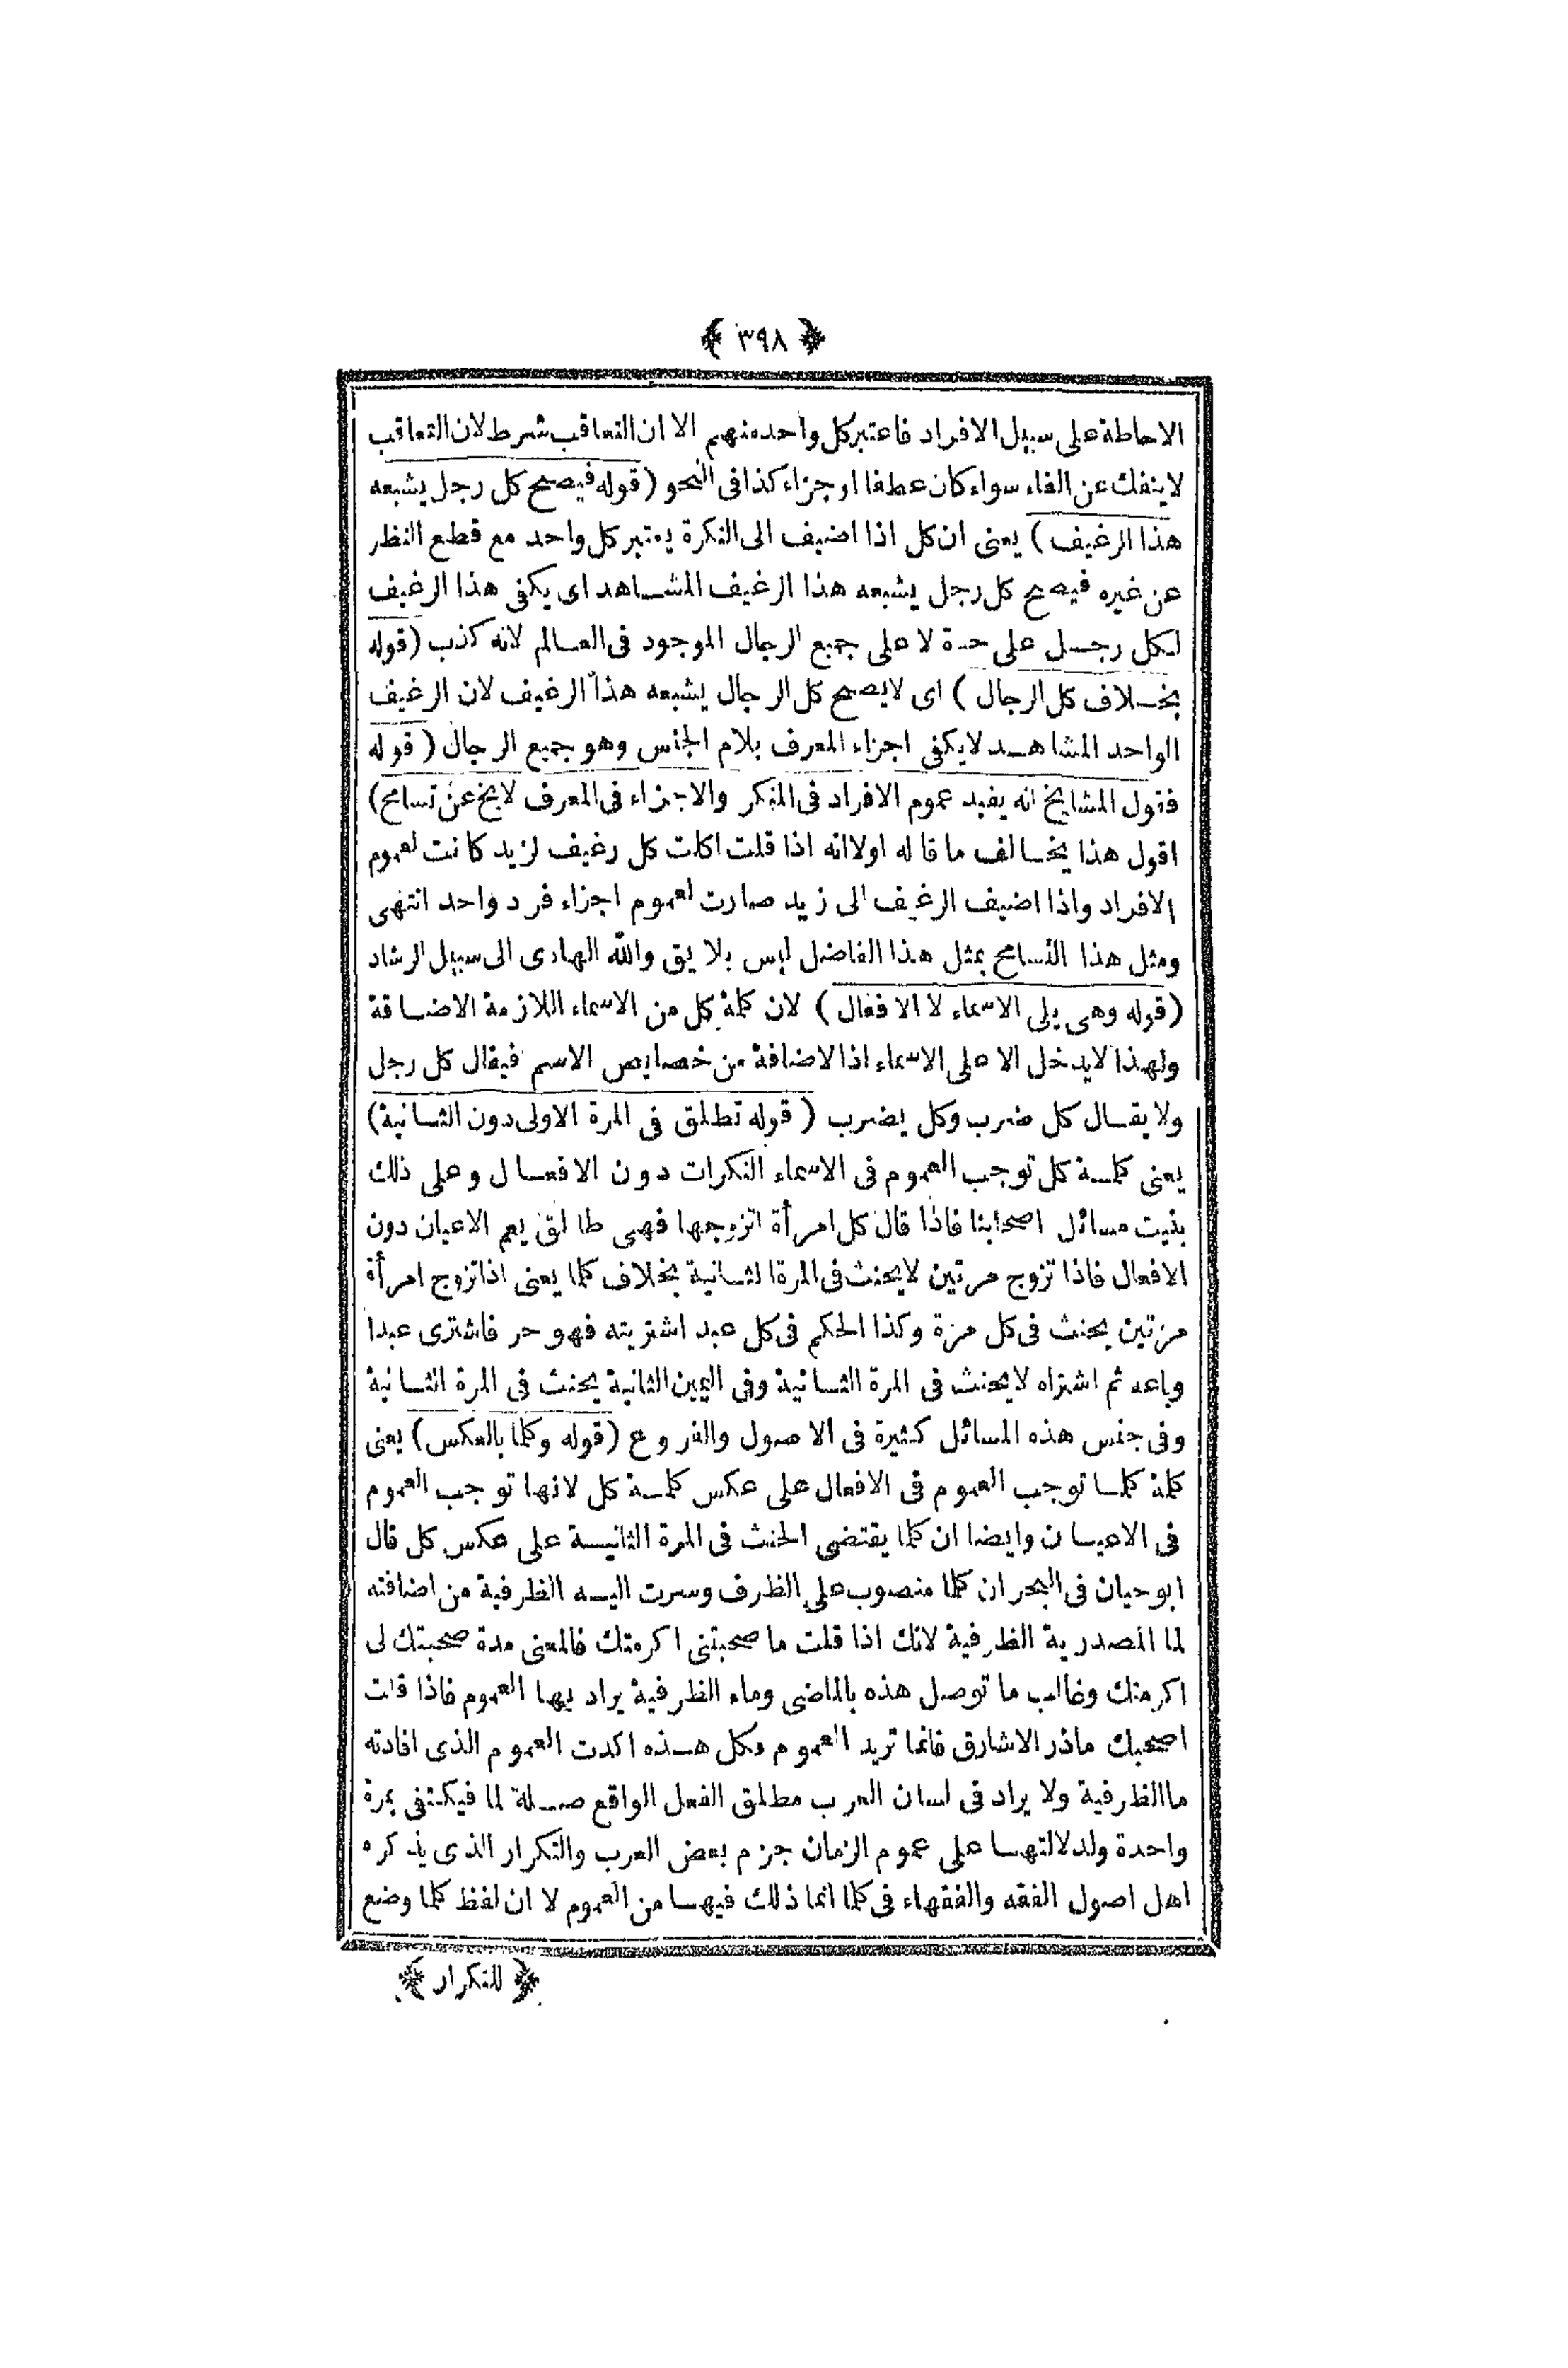 ﴿ ٣٩٨ ﴾
الاحاطة على سبيل الافراد فاعتبر كل واحد منهم الا ان التعاقب شرط لان التعاقب
لاينفك عن الفاء سواء كان عطفا اوجزاء كذا فى النحو (قوله فيصح كل رجل يشبعه
هذا الرغيف) يعنى ان كل اذا اضيف الى النكرة يعتبر كل واحد مع قطع النظر
عن غيره فيصح كل رجل يشبعه هذا الرغيف المشاهد اى يكفى هذا الرغيف
لكل رجل على حدة لا على جميع الرجال الموجود فى العالم لانه كذب (قوله
بخلاف كل الرجال) اى لايصح كل الرجال يشبعه هذا الرغيف لان الرغيف
الواحد المشاهد لايكفى اجزاء المعرف بلام الجنس وهو جميع الرجال (قوله
فقول المشايخ انه يفيد عموم الافراد فى المنكر والاجزاء فى المعرف لايخ عن تسامح)
اقول هذا يخالف ما قاله اولا انه اذا قلت اكلت كل رغيف لزيد كانت لعموم
الافراد واذا اضيف الرغيف الى زيد صارت لعموم اجزاء فرد واحد انتهى
ومثل هذا التسامح بمثل هذا الفاضل ليس بلايق والله الهادى الى سبيل الرشاد
(قوله وهى يلى الاسماء لا الافعال) لان كلة كل من الاسماء اللازمة الاضافة
ولهذا لايدخل الا على الاسماء اذا لاضافة من خصايص الاسم فيقال كل رجل
ولايقال كل ضرب وكل يضرب (قوله تطلق فى المرة الاولى دون الثانية)
يعنى كلة كل توجب العموم فى الاسماء النكرات دون الافعال وعلى ذلك
بنيت مسائل اصحابنا فاذا قال كل امرأة اتزوجها فهى طالق يعم الاعيان دون
الافعال فاذا تزوج مرتين لايحنث فى المرة الثانية بخلاف كلما يعنى اذا تزوج امرأة
مرتين يحنث فى كل مرة وكذا الحكم فى كل عبد اشتريته فهو حر فاشترى عبدا
وباعه ثم اشتراه لايحنث فى المرة الثانية وفى اليمين الثانية يحنث فى المرة الثانية
وفى جنس هذه المسائل كثيرة فى الاصول والفروع (قوله وكلما بالعكس) يعنى
كلة كلما توجب العموم فى الافعال على عكس كلة كل لانها توجب العموم
فى الاعيان وايضا ان كلما يقتضى الحنث فى المرة الثانية على عكس كل قال
ابو حيان فى البحر ان كلما منصوب على الظرف وسرت اليه الظرفية من اضافته
لما المصدرية الظرفية لانك اذا قلت ما صحبتنى اكرمتك فالمعنى مدة صحبتك لى
اكرمتك وغالب ما توصل هذه بالماضى وماء الظرفية يراد بها العموم فاذا قلت
اصحبك ماذر الاشارق فانما تريد العموم وكل هذه اكدت العموم الذى افادته
ما الظرفية ولا يراد فى لسان العرب مطلق الفعل الواقع صلة لما فيكتفى بمرة
واحدة ولدلالتها على عموم الزمان جزم بعض العرب والتكرار الذى يذكره
اهل اصول الفقه والفقهاء فى كلما انما ذلك فيها من العموم لا ان لفظ كلما وضع
﴿ للتكرار ﴾